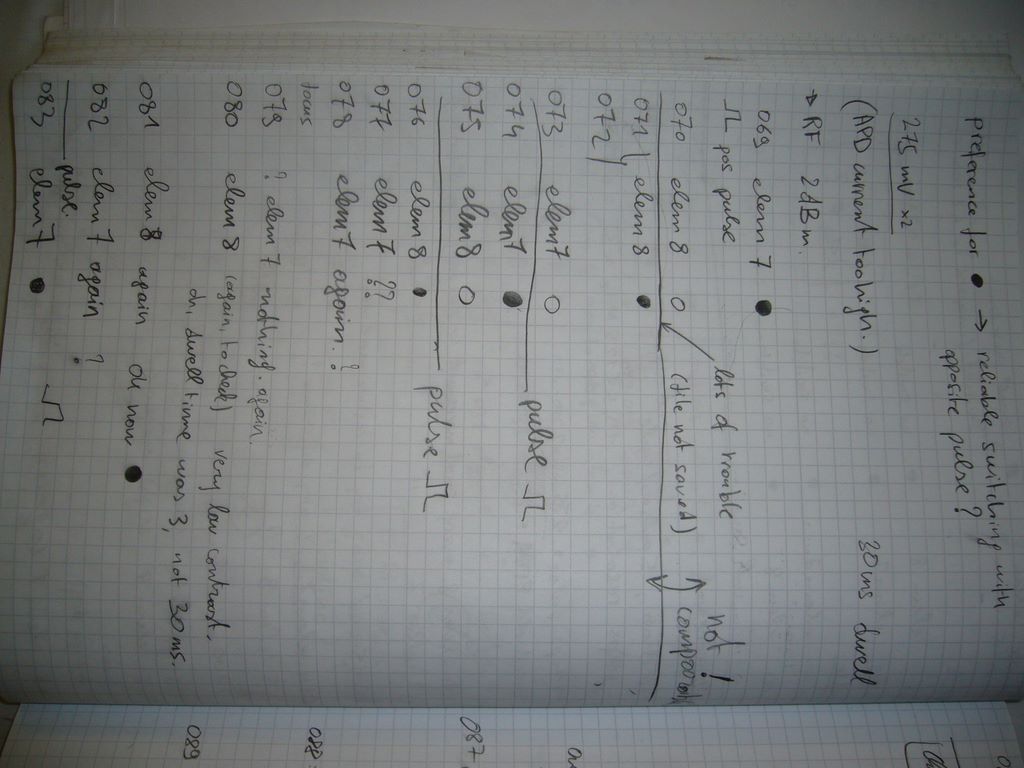 preference for ● → reliable switching with
opposite pulse?
275 mV x2
(APD current too high.) 30ms dwell
→ RF 2dBm.
069 elem 7 ●
⎍ pos pulse
lots of trouble
not !
070 elem 8 O (file not saved)
071 elem 8 ●
072
073 elem7 O
pulse ⎍
074 elem7 ●
075 elem8 O
pulse ⎍
076 elem8 ●
077 elem7 ??
078 elem7 again. ?
079 ? elem 7 nothing. again.
080 elem 8 (again, to check) very low contrast.
oh, dwell time was 3, not 30ms.
081 elem 8 again ok now ●
082 elem 7 again ?
pulse. ⎍
083 elem 7 ●
087
088
089